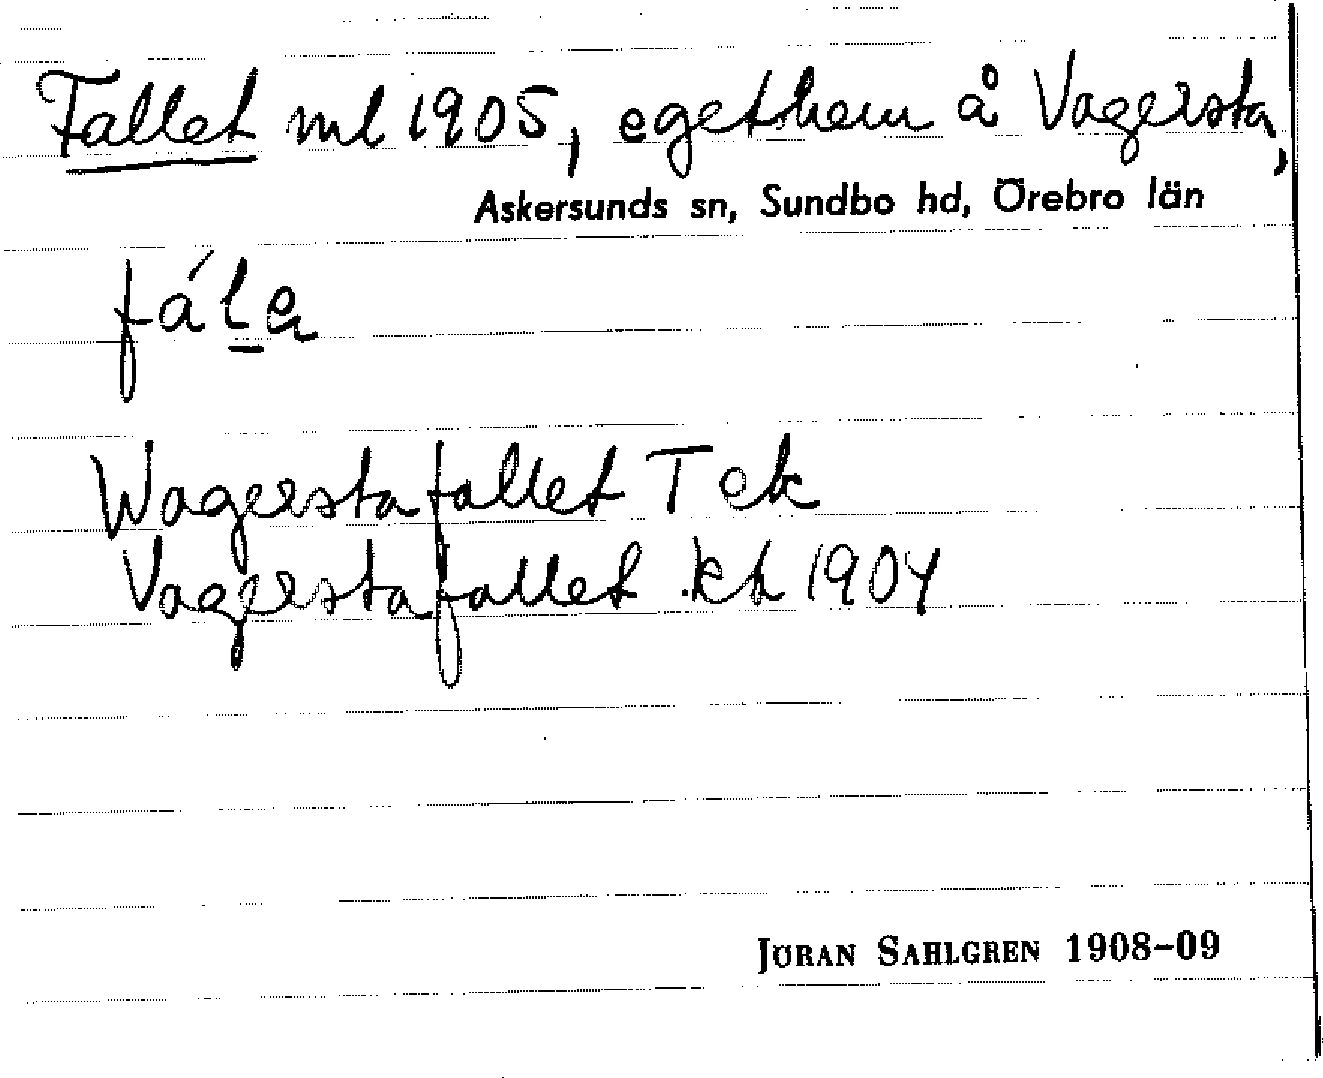 Fallet ml 1905, egethem å Vagersta,
Askersunds sn, Sundbo hd, Örebro län
fál̲a
Wagerstafallet T ek
Vagerstafallet kt 1904
JÖRAN SAHLGREN 1908-09